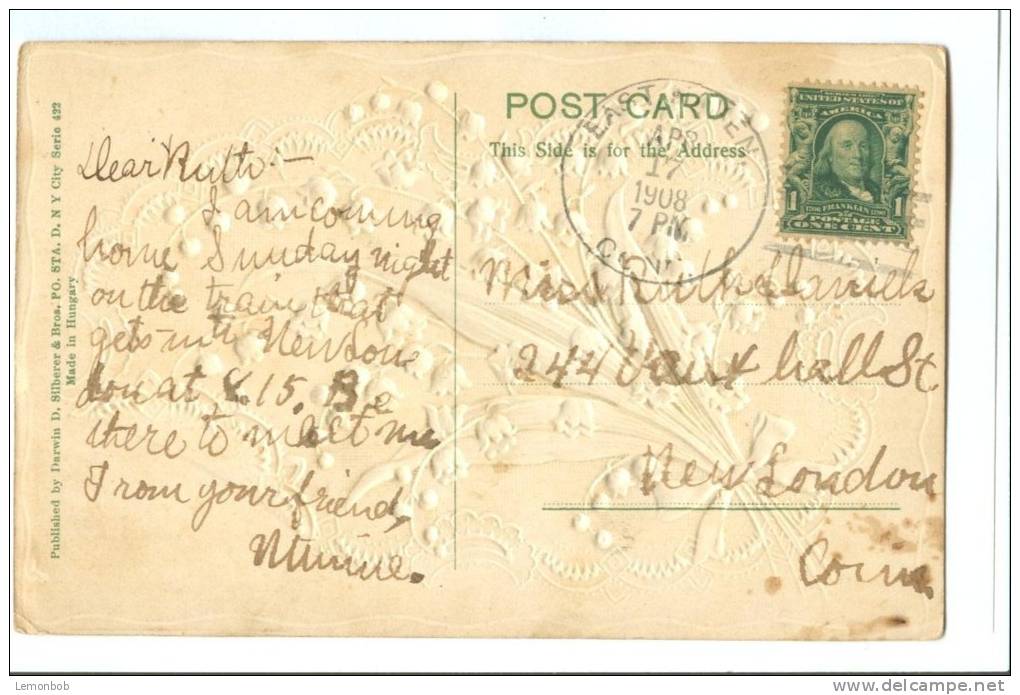 POST CARD
This Side is for the Address
EAST HAVEN
APR
17
1908
7 PM
CONN.
SERIES 1902
UNITED STATES OF
AMERICA
1 FRANKLIN 1
POSTAGE
ONE CENT
Published by Darwin D. Silberer & Bros. PO. STA. D. N Y City Serie 422
Made in Hungary
Dear Ruth:-
I am coming
home Sunday night
on the train that
gets into New Lon
don at 8.15. Be
there to meet me
From your friend,
Minnie.
Miss Ruth Daniels
244 Vaux hall St
New London
Conn.
Lemonbob
delcampe.net